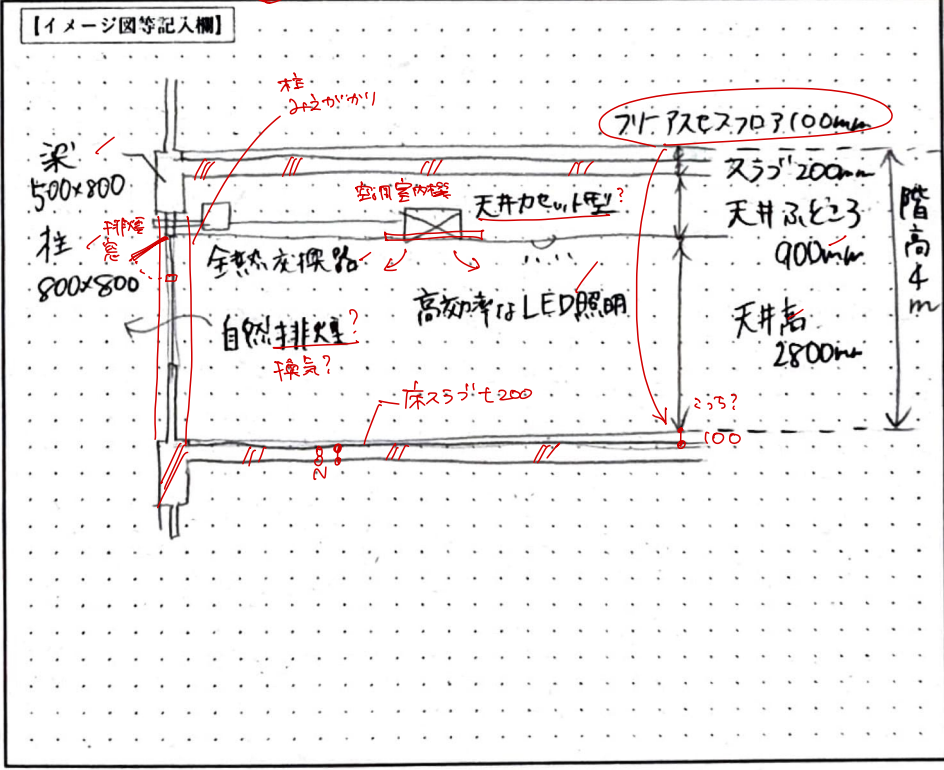 【イメージ図等記入欄】
柱
みえがかり
フリーアクセスフロア100mm
梁
500×800
スラブ 200mm
空調室内機
天井カセット型?
天井ふところ
900mm
階高4m
排煙窓
柱
800×800
全熱交換器
高効率なLED照明
天井高
2800mm
自然排煙?
換気?
床スラブ t200
こっち?
100
200